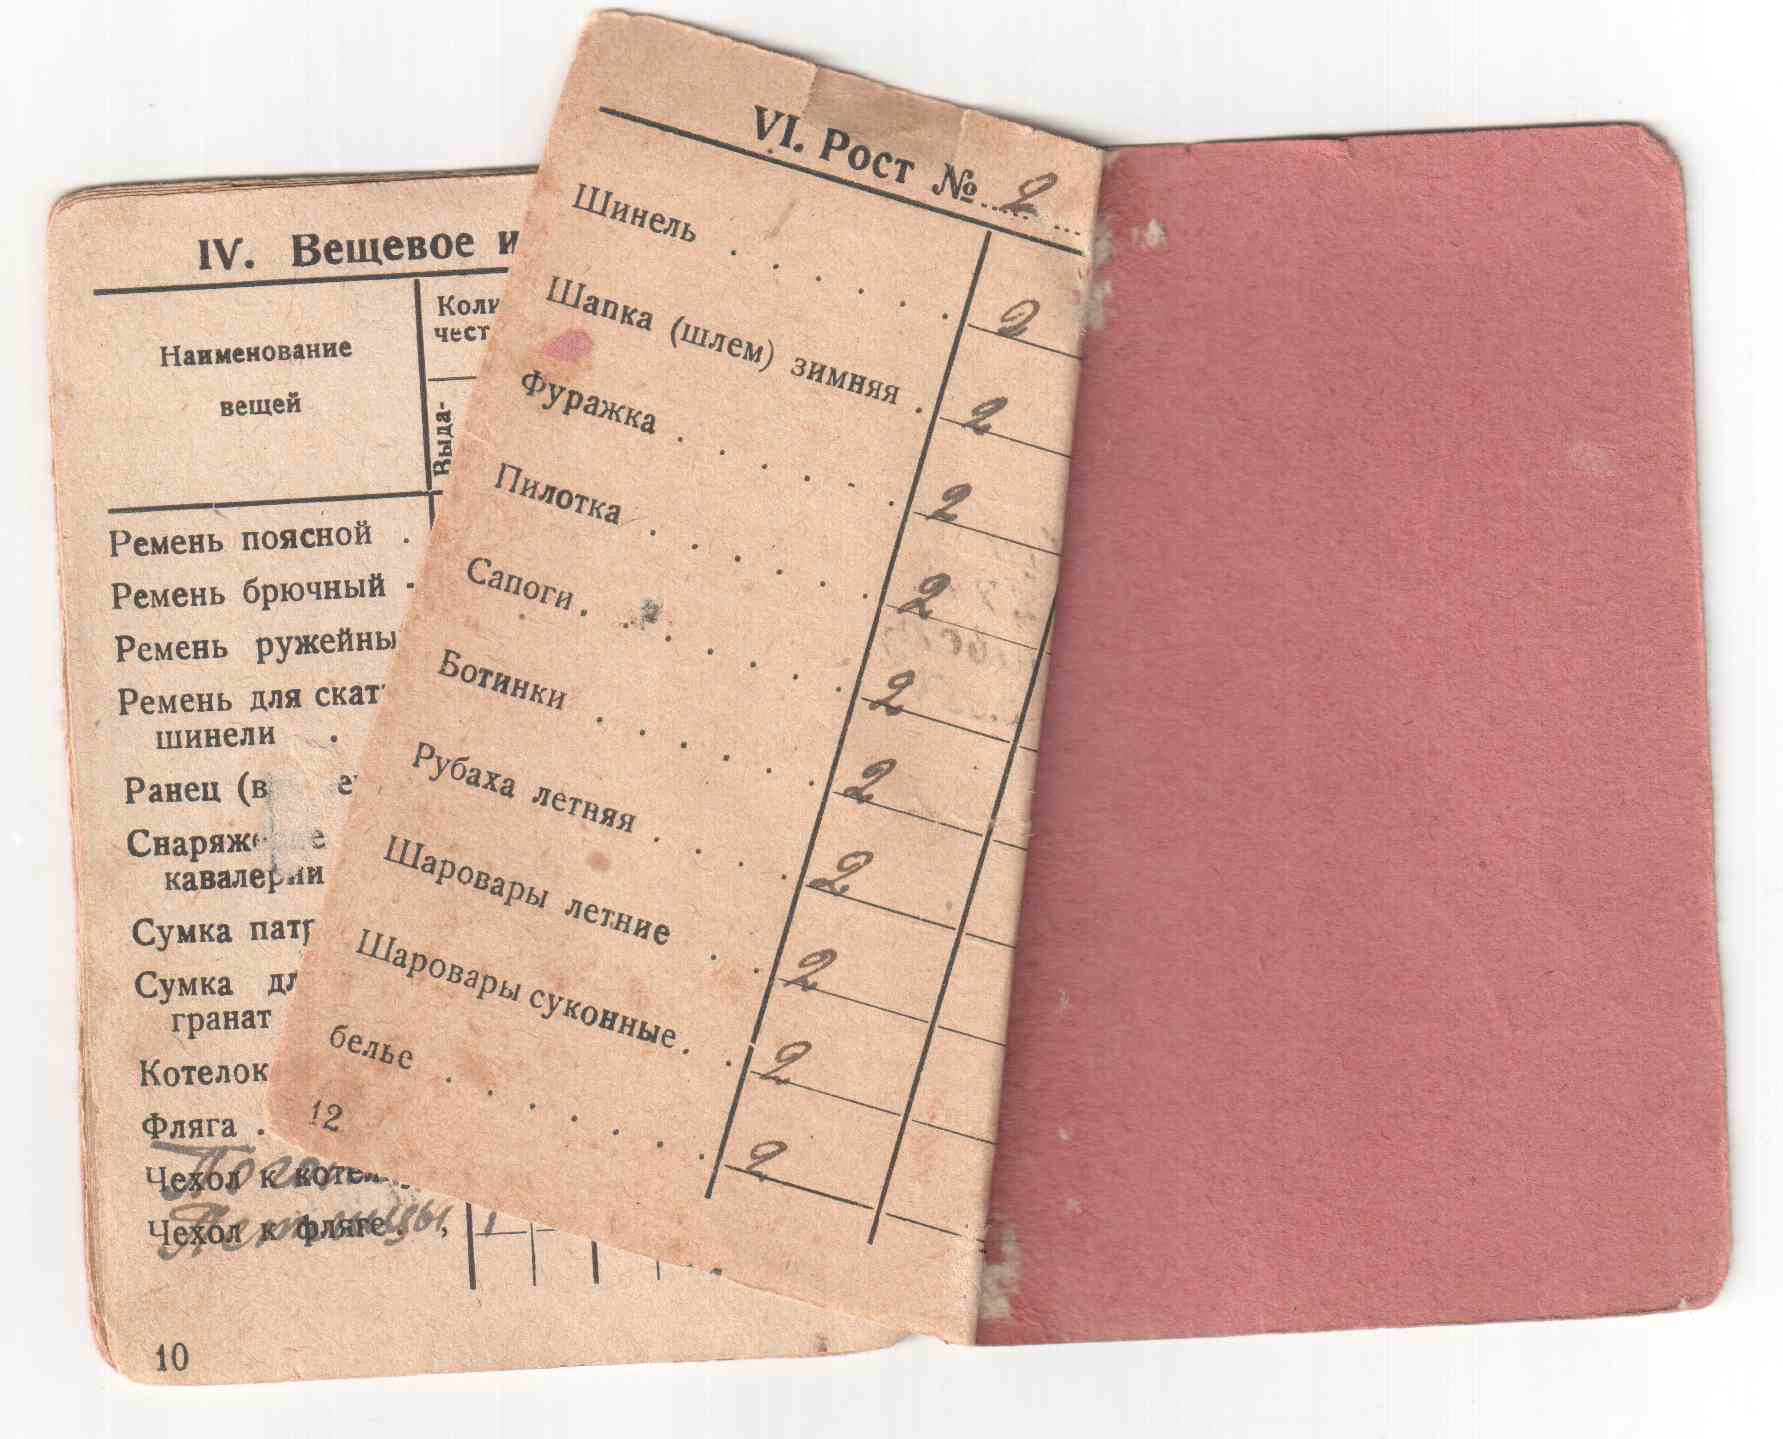 IV. Вещевое и
Наименование
вещей
Коли
чест
Выда-
Ремень поясной .
Ремень брючный -
Ремень ружейны
Ремень для скат
шинели .
Ранец (в
Снаряж
кавалерии
Сумка патр
Сумка дл
гранат
Котелок
Фляга .
Чехол к котел
Чехол к фляге . ,
Петлицы 1
10
VI. Рост № 2
Шинель . . . . . . 2
Шапка (шлем) зимняя . 2
Фуражка . . . . . . 2
Пилотка . . . . . . 2
Сапоги . . . . . . . 2
Ботинки . . . . . . 2
Рубаха летняя . . . . 2
Шаровары летние . . 2
Шаровары суконные . . 2
белье . . . . . . . 2
12